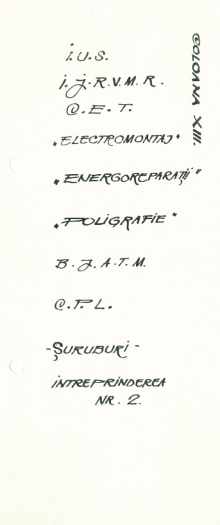 COLOANA XIII.
I.U.S.
I.J.R.V.M.R.
C.E.T.
"ELECTROMONTAJ"
"ENERGOREPARAȚII"
"POLIGRAFIE"
B.J.A.T.M.
C.P.L.
-ȘURUBURI-
INTREPRINDEREA
NR. 2.